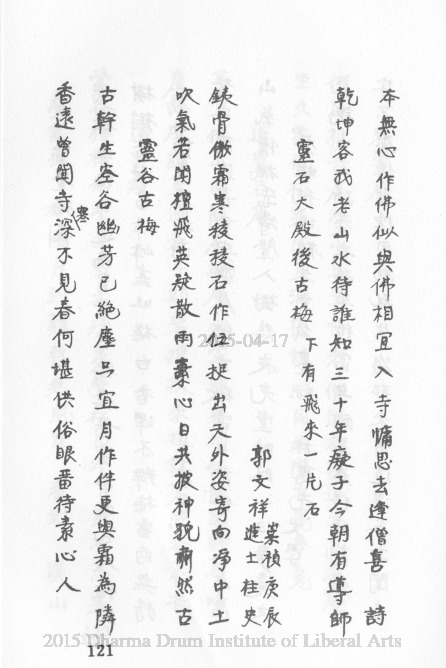 本無心作佛似與佛相宜入寺慵思去逢僧喜 詩
乾坤容我老山水待誰知三十年癡子今朝有導師
靈石大殿後古梅 下有飛來一片石
郭文祥 崇禎庚辰進士柱史
鉄骨傲霜寒稜稜石作伍挺出天外姿寄向淨中土
吹氣若開檀飛英疑散雨素心日共披神貌肅然古
靈谷古梅
古幹生空谷幽芳已絶塵只宜月作伴更與霜為隣
香遠曾聞寺深寒不見春何堪供俗眼畱待素心人
2025-04-17
2015 Dharma Drum Institute of Liberal Arts
121